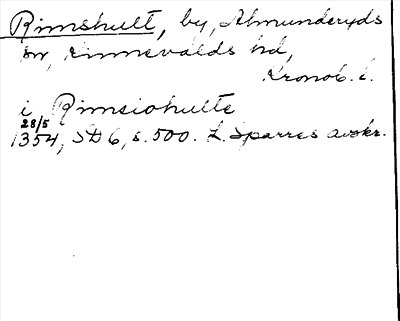 Rimshult, by, Almunderyds
sn, Kinnevalds hd,
Kronob. l.
i Rimsiohulte
28/5
1354, SD 6, s. 500. L. Sparres avskr.